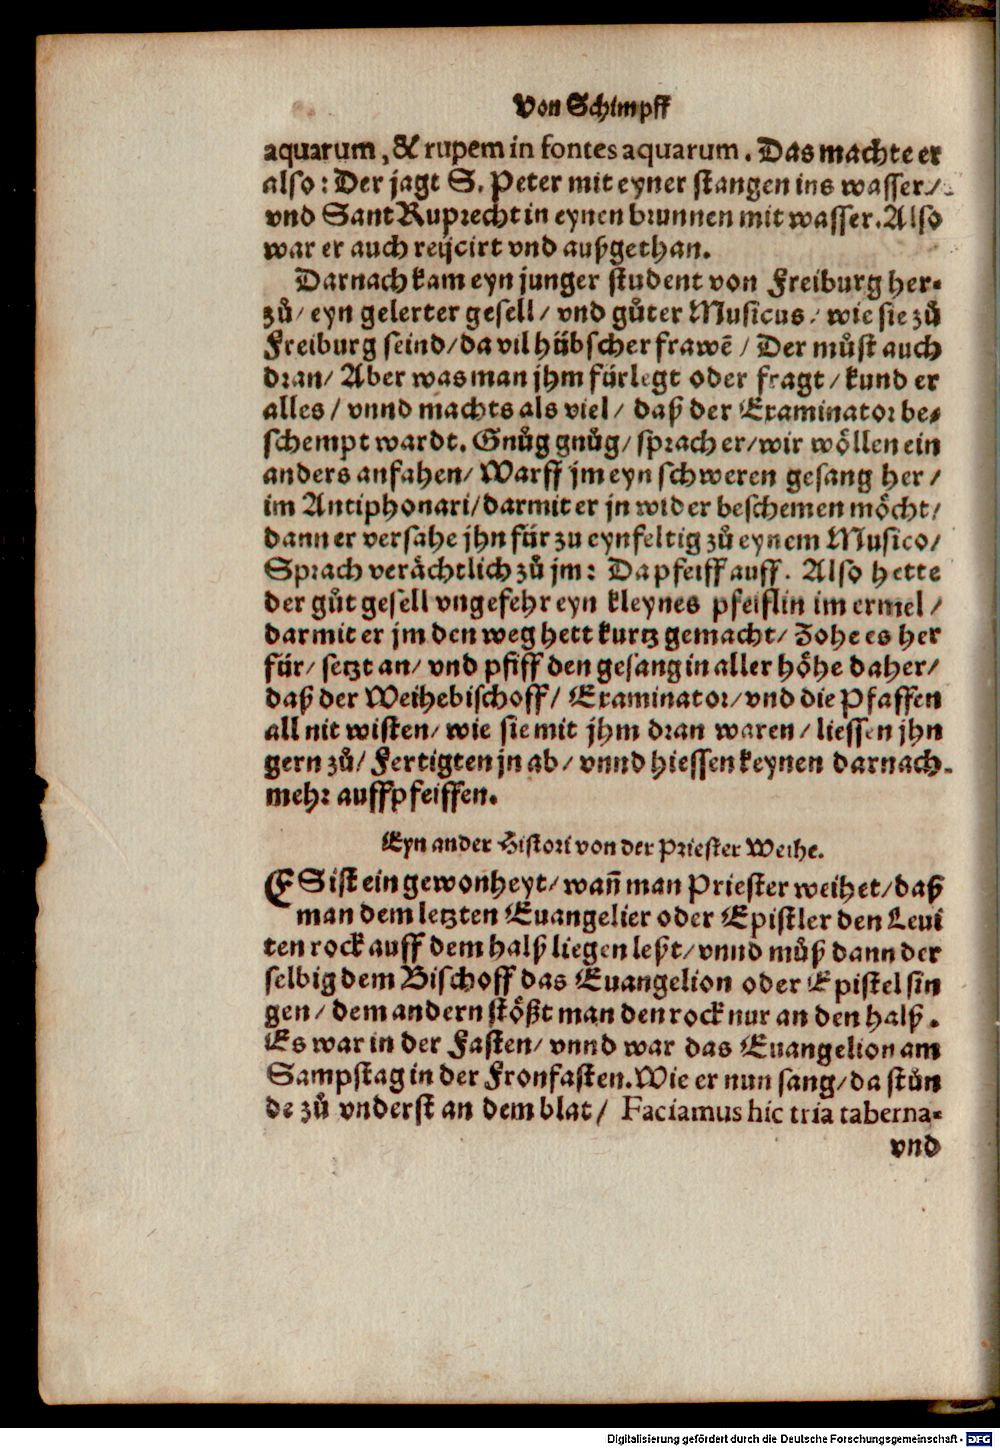 Von Schimpff
aquarum, & rupem in fontes aquarum. Das machte er
also: Der jagt S. Peter mit eyner stangen ins wasser/
vnd Sant Ruprecht in eynen brunnen mit wasser. Also
war er auch reijcirt vnd außgethan.
Darnach kam eyn junger student von Freiburg her-
zů/ eyn gelerter gesell/ vnd gůter Musicus/ wie sie zů
Freiburg seind/ da vil hübscher frawē/ Der můst auch
dran/ Aber was man jhm fürlegt oder fragt/ kund er
alles/ vnnd machts als viel/ daß der Examinator be-
schempt wardt. Gnůg gnůg/ sprach er/ wir wöllen ein
anders anfahen/ Warff jm eyn schweren gesang her/
im Antiphonari/ darmit er jn wider beschemen möcht/
dann er versahe jhn für zu eynfeltig zů eynem Musico/
Sprach verächtlich zů jm: Da pfeiff auff. Also hette
der gůt gesell vngefehr eyn kleynes pfeiflin im ermel/
darmit er jm den weg hett kurtz gemacht/ Zohe es her
für/ setzt an/ vnd pfiff den gesang in aller höhe daher/
daß der Weihebischoff/ Examinator/ vnd die Pfaffen
all nit wisten/ wie sie mit jhm dran waren/ liessen jhn
gern zů/ Fertigten jn ab/ vnnd hiessen keynen darnach-
mehr auffpfeiffen.
Eyn ander Histori von der Priester Weihe.
ES ist ein gewonheyt/ wañ man Priester weihet/ daß
man dem letzten Euangelier oder Epistler den Leui
ten rock auff dem halß liegen leßt/ vnnd můß dann der
selbig dem Bischoff das Euangelion oder Epistel sin
gen/ dem andern stößt man den rock nur an den halß.
Es war in der Fasten/ vnnd war das Euangelion am
Sampstag in der Fronfasten. Wie er nun sang/ da stůn
de zů vnderst an dem blat/ Faciamus hic tria taberna-
vnd
Digitalisierung gefördert durch die Deutsche Forschungsgemeinschaft - DFG